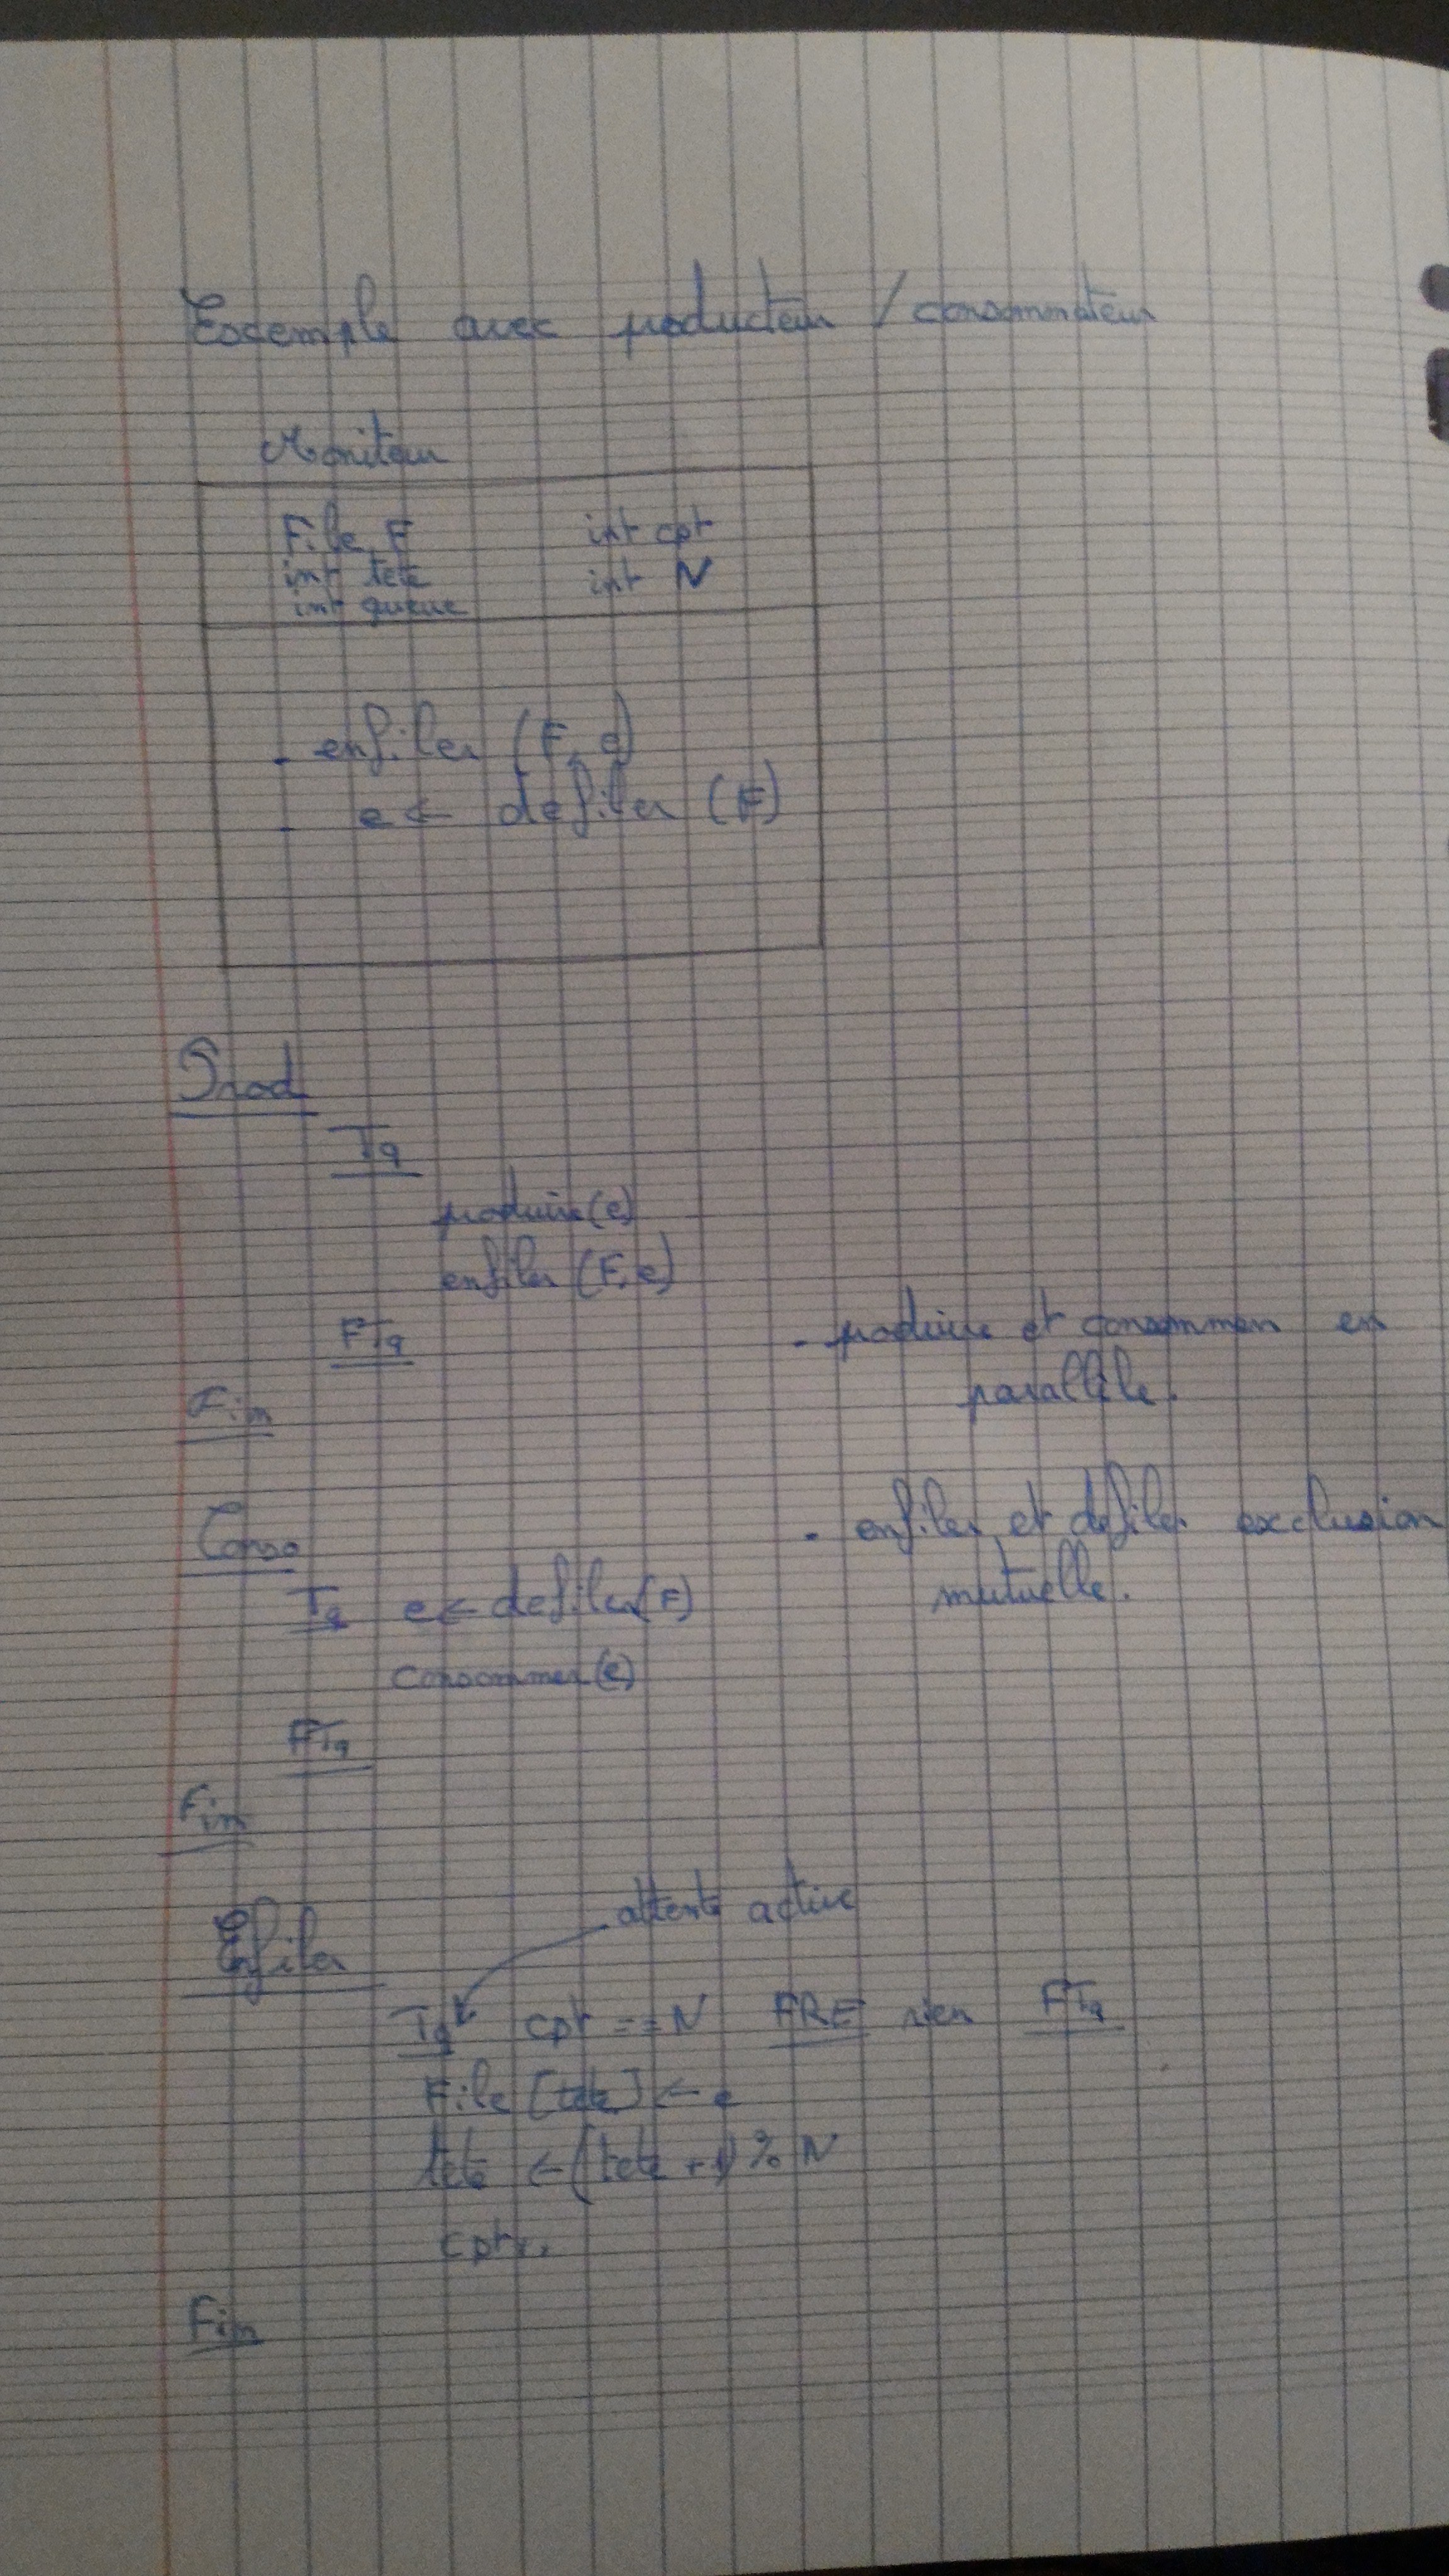 Exemple avec producteur / consommateur
Moniteur
File F int cpt
int tete int N
int queue
- enfiler (F, e)
- e ← defiler (F)
Prod
Tq
produire(e)
enfiler (F, e)
FTq
- produire et consommer en
parallèle.
Fin
Conso
- enfiler et defiler exclusion
mutuelle.
Tq e ← defiler(F)
consommer(e)
FTq
Fin
attente active
Enfiler
Tq cpt == N FRE rien FTq
File [tete] ← e
tete ← (tete + 1) % N
cpt++
Fin